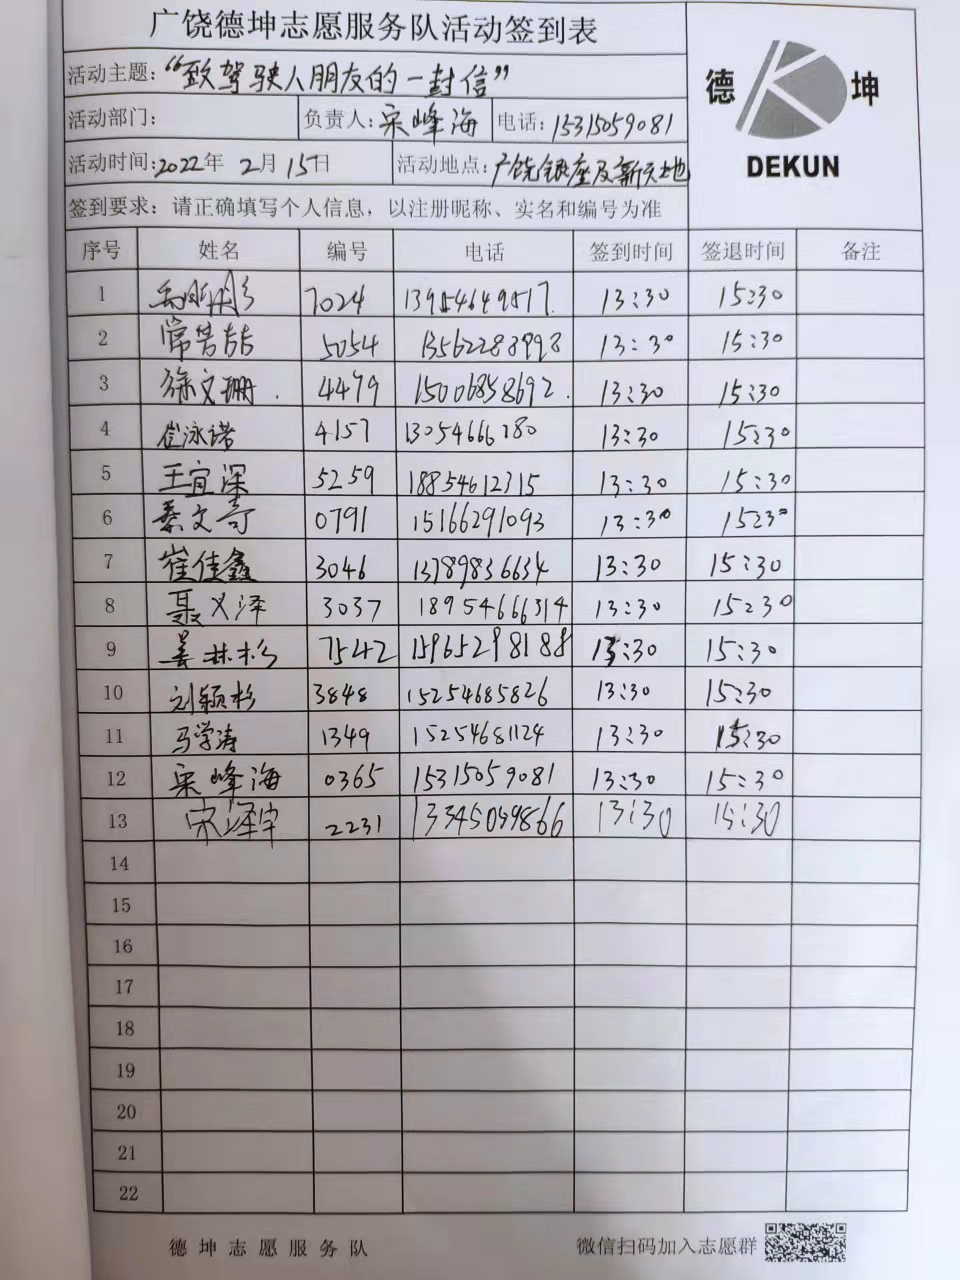 广饶德坤志愿服务队活动签到表
活动主题:“致驾驶人朋友的一封信”
活动部门: 负责人:宋峰海 电话:15315059081
活动时间:2022年2月15日 活动地点:广饶银座及新天地
签到要求: 请正确填写个人信息, 以注册昵称、实名和编号为准
德 坤
DEKUN
序号 姓名 编号 电话 签到时间 签退时间 备注
1 7024 13954649517 13:30 15:30
2 常喆喆 5054 13562283998 13:30 15:30
3 徐文珊 4479 15006858692 13:30 15:30
4 崔泳诺 4157 13:30 15:30
5 王宜深 5259 18854612315 13:30 15:30
6 秦文奇 0791 15166291093 13:30 15:30
7 崔佳鑫 3046 13789836634 13:30 15:30
8 聂义泽 3037 18954666314 13:30 15:30
9 姜林杉 7542 15965298188 13:30 15:30
10 刘颖杉 3848 15254685826 13:30 15:30
11 马学涛 1349 15254681124 13:30 15:30
12 宋峰海 0365 15315059081 13:30 15:30
13 宋泽宇 2231 13345059866 13:30 15:30
14
15
16
17
18
19
20
21
22
德坤志愿服务队 微信扫码加入志愿群